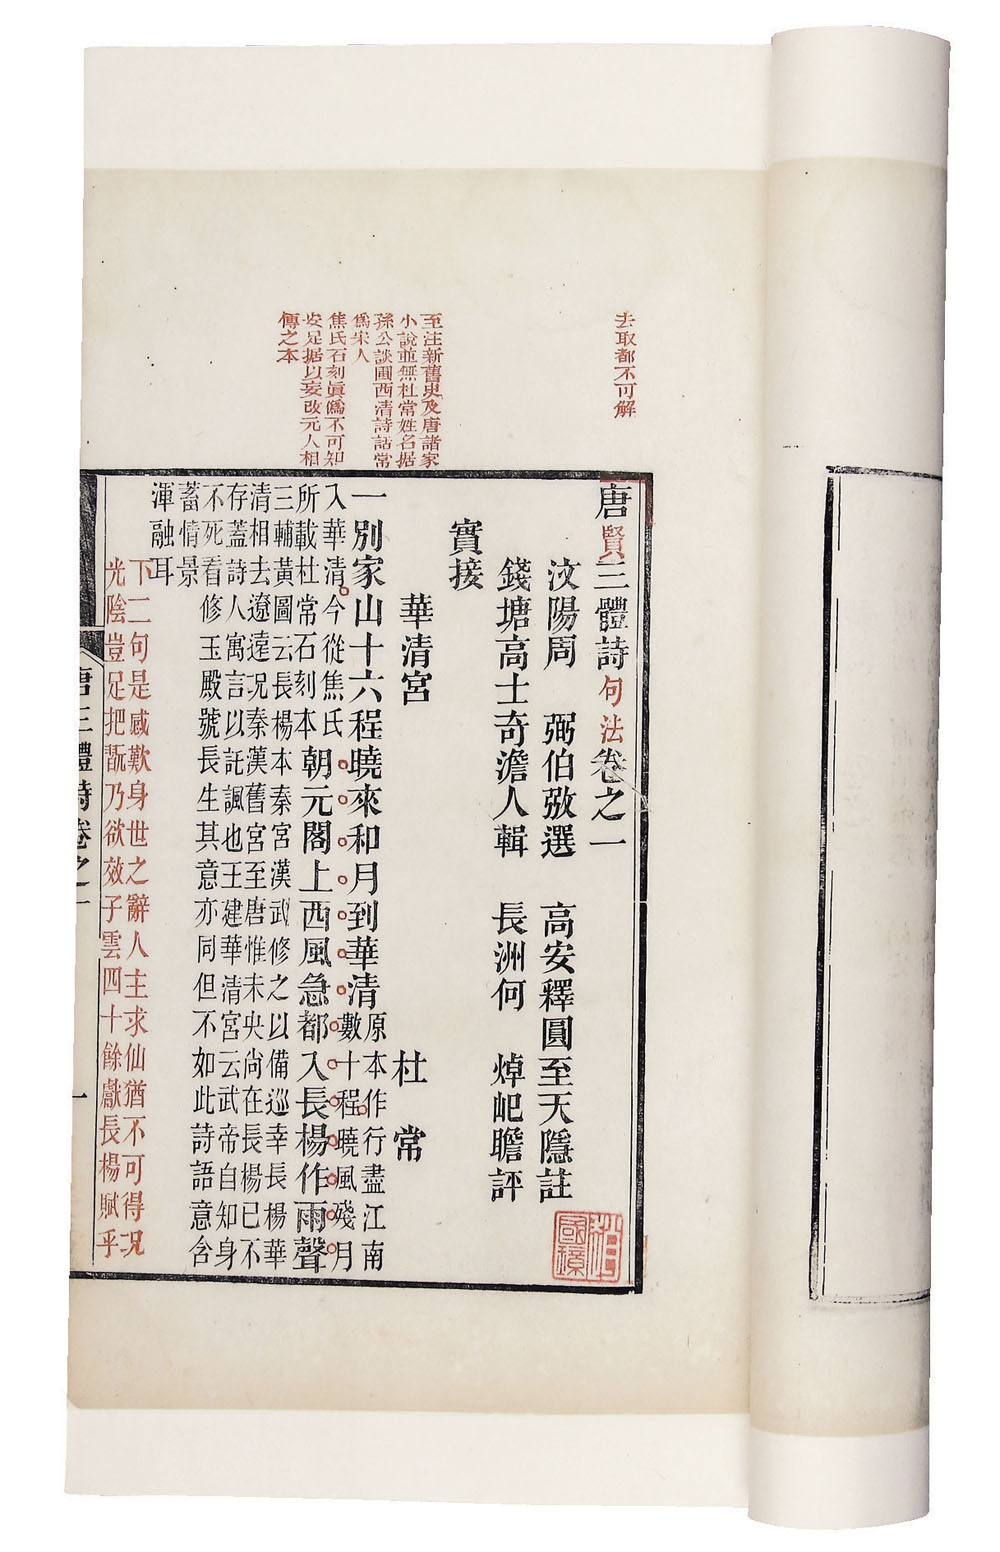 去取都不可解
唐賢三體詩句法卷之一
汶陽周 弼伯弜選 高安釋圓至天隱註
錢塘高士奇澹人輯 長洲何 焯屺瞻評
實接
華清宮 杜 常
至注新舊史及唐諸家
小說並無杜常姓名据
孫公談圃西清詩話常
爲宋人
焦氏石刻眞僞不可知
安足据以妄改元人相
傳之本
一別家山十六程曉來和月到華清
原本作行盡江南
數十程曉風殘月
入華清今從焦氏
所載杜常石刻本
朝元閣上西風急都入長楊作雨聲
三輔黃圖云長楊本秦宮漢武修之以備巡幸長楊華
清相去遼遠況秦漢舊宮至唐惟未央尚在長楊已不
存蓋詩人寓言以託諷也王建華清宮云武帝自知身
不死看修玉殿號長生其意亦同但不如此詩語意含
蓄情景
渾融耳
下二句是感歎身世之辭人主求仙猶不可得況
光陰豈足把翫乃欲效子雲四十餘獻長楊賦乎
唐三體詩卷之一
一